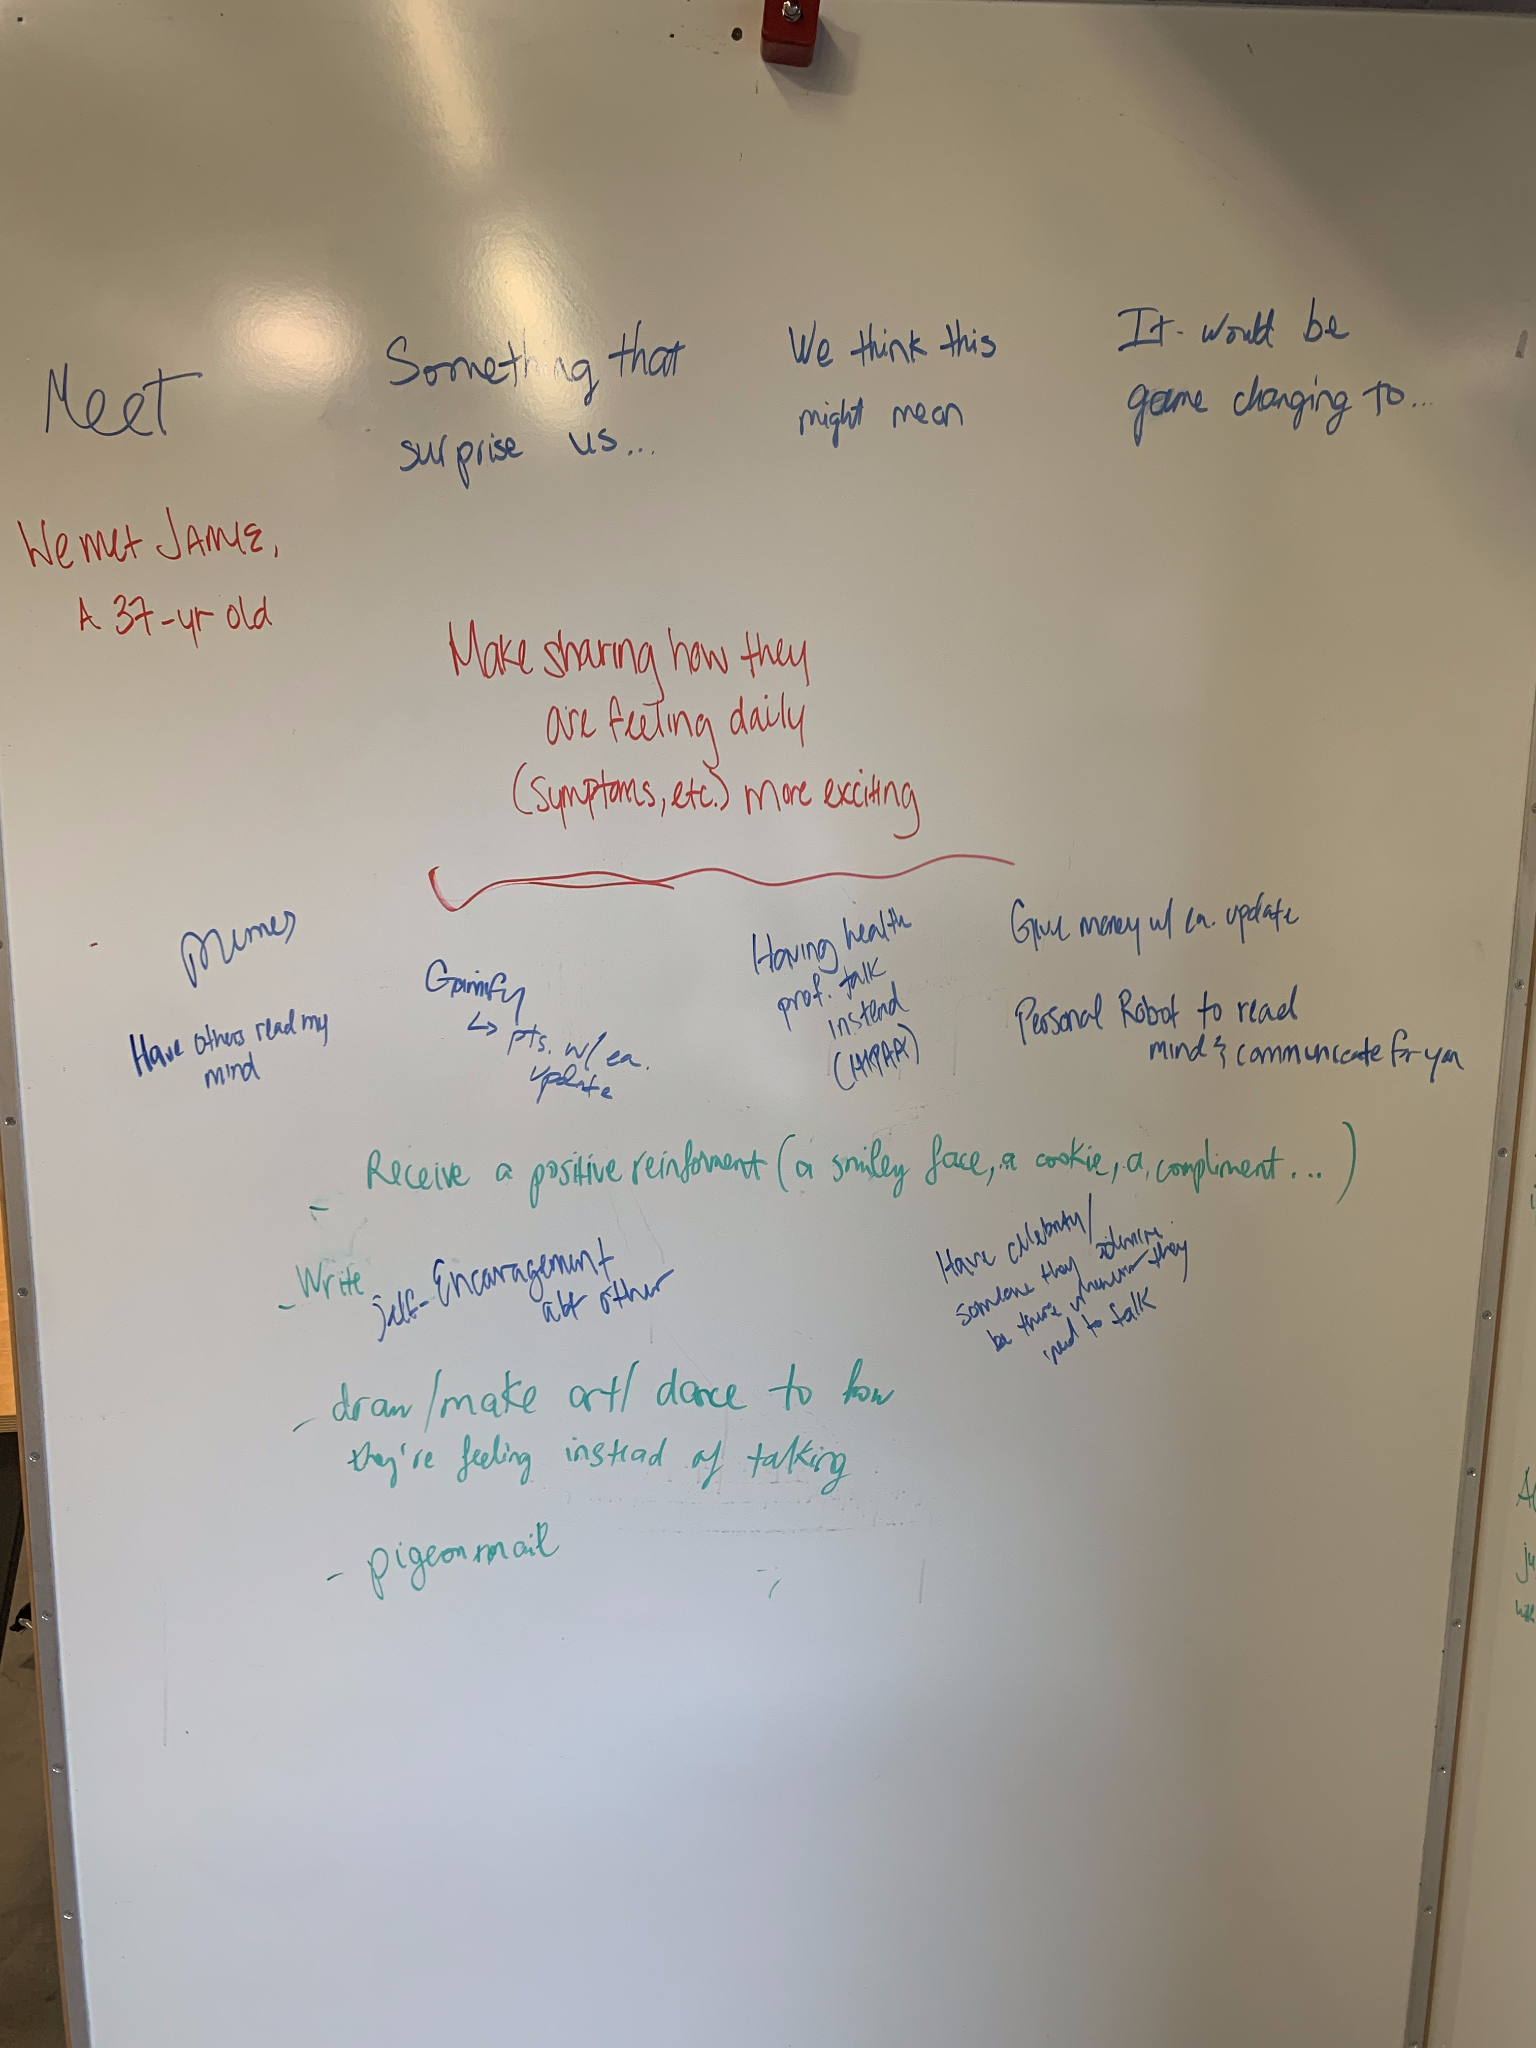 Meet
Something that
surprise us...
We think this
might mean
It would be
game changing to...
We met JAMIE,
A 37-yr old
Make sharing how they
are feeling daily
(symptoms, etc.) more exciting
Mimes
Have others read my
mind
Gamify
↳ pts. w/ ea.
update
Having health
prof. talk
instead
(HIPAA)
Give money w/ ea. update
Personal Robot to read
mind & communicate for you
- Receive a positive reinforment (a smiley face, a cookie, a compliment...)
- Write
self-Encaragement
abt other
Have celebrity/
someone they admire
be there whenever they
need to talk
- draw/make art/ dance to how
they're feeling instead of talking
- pigeon mail